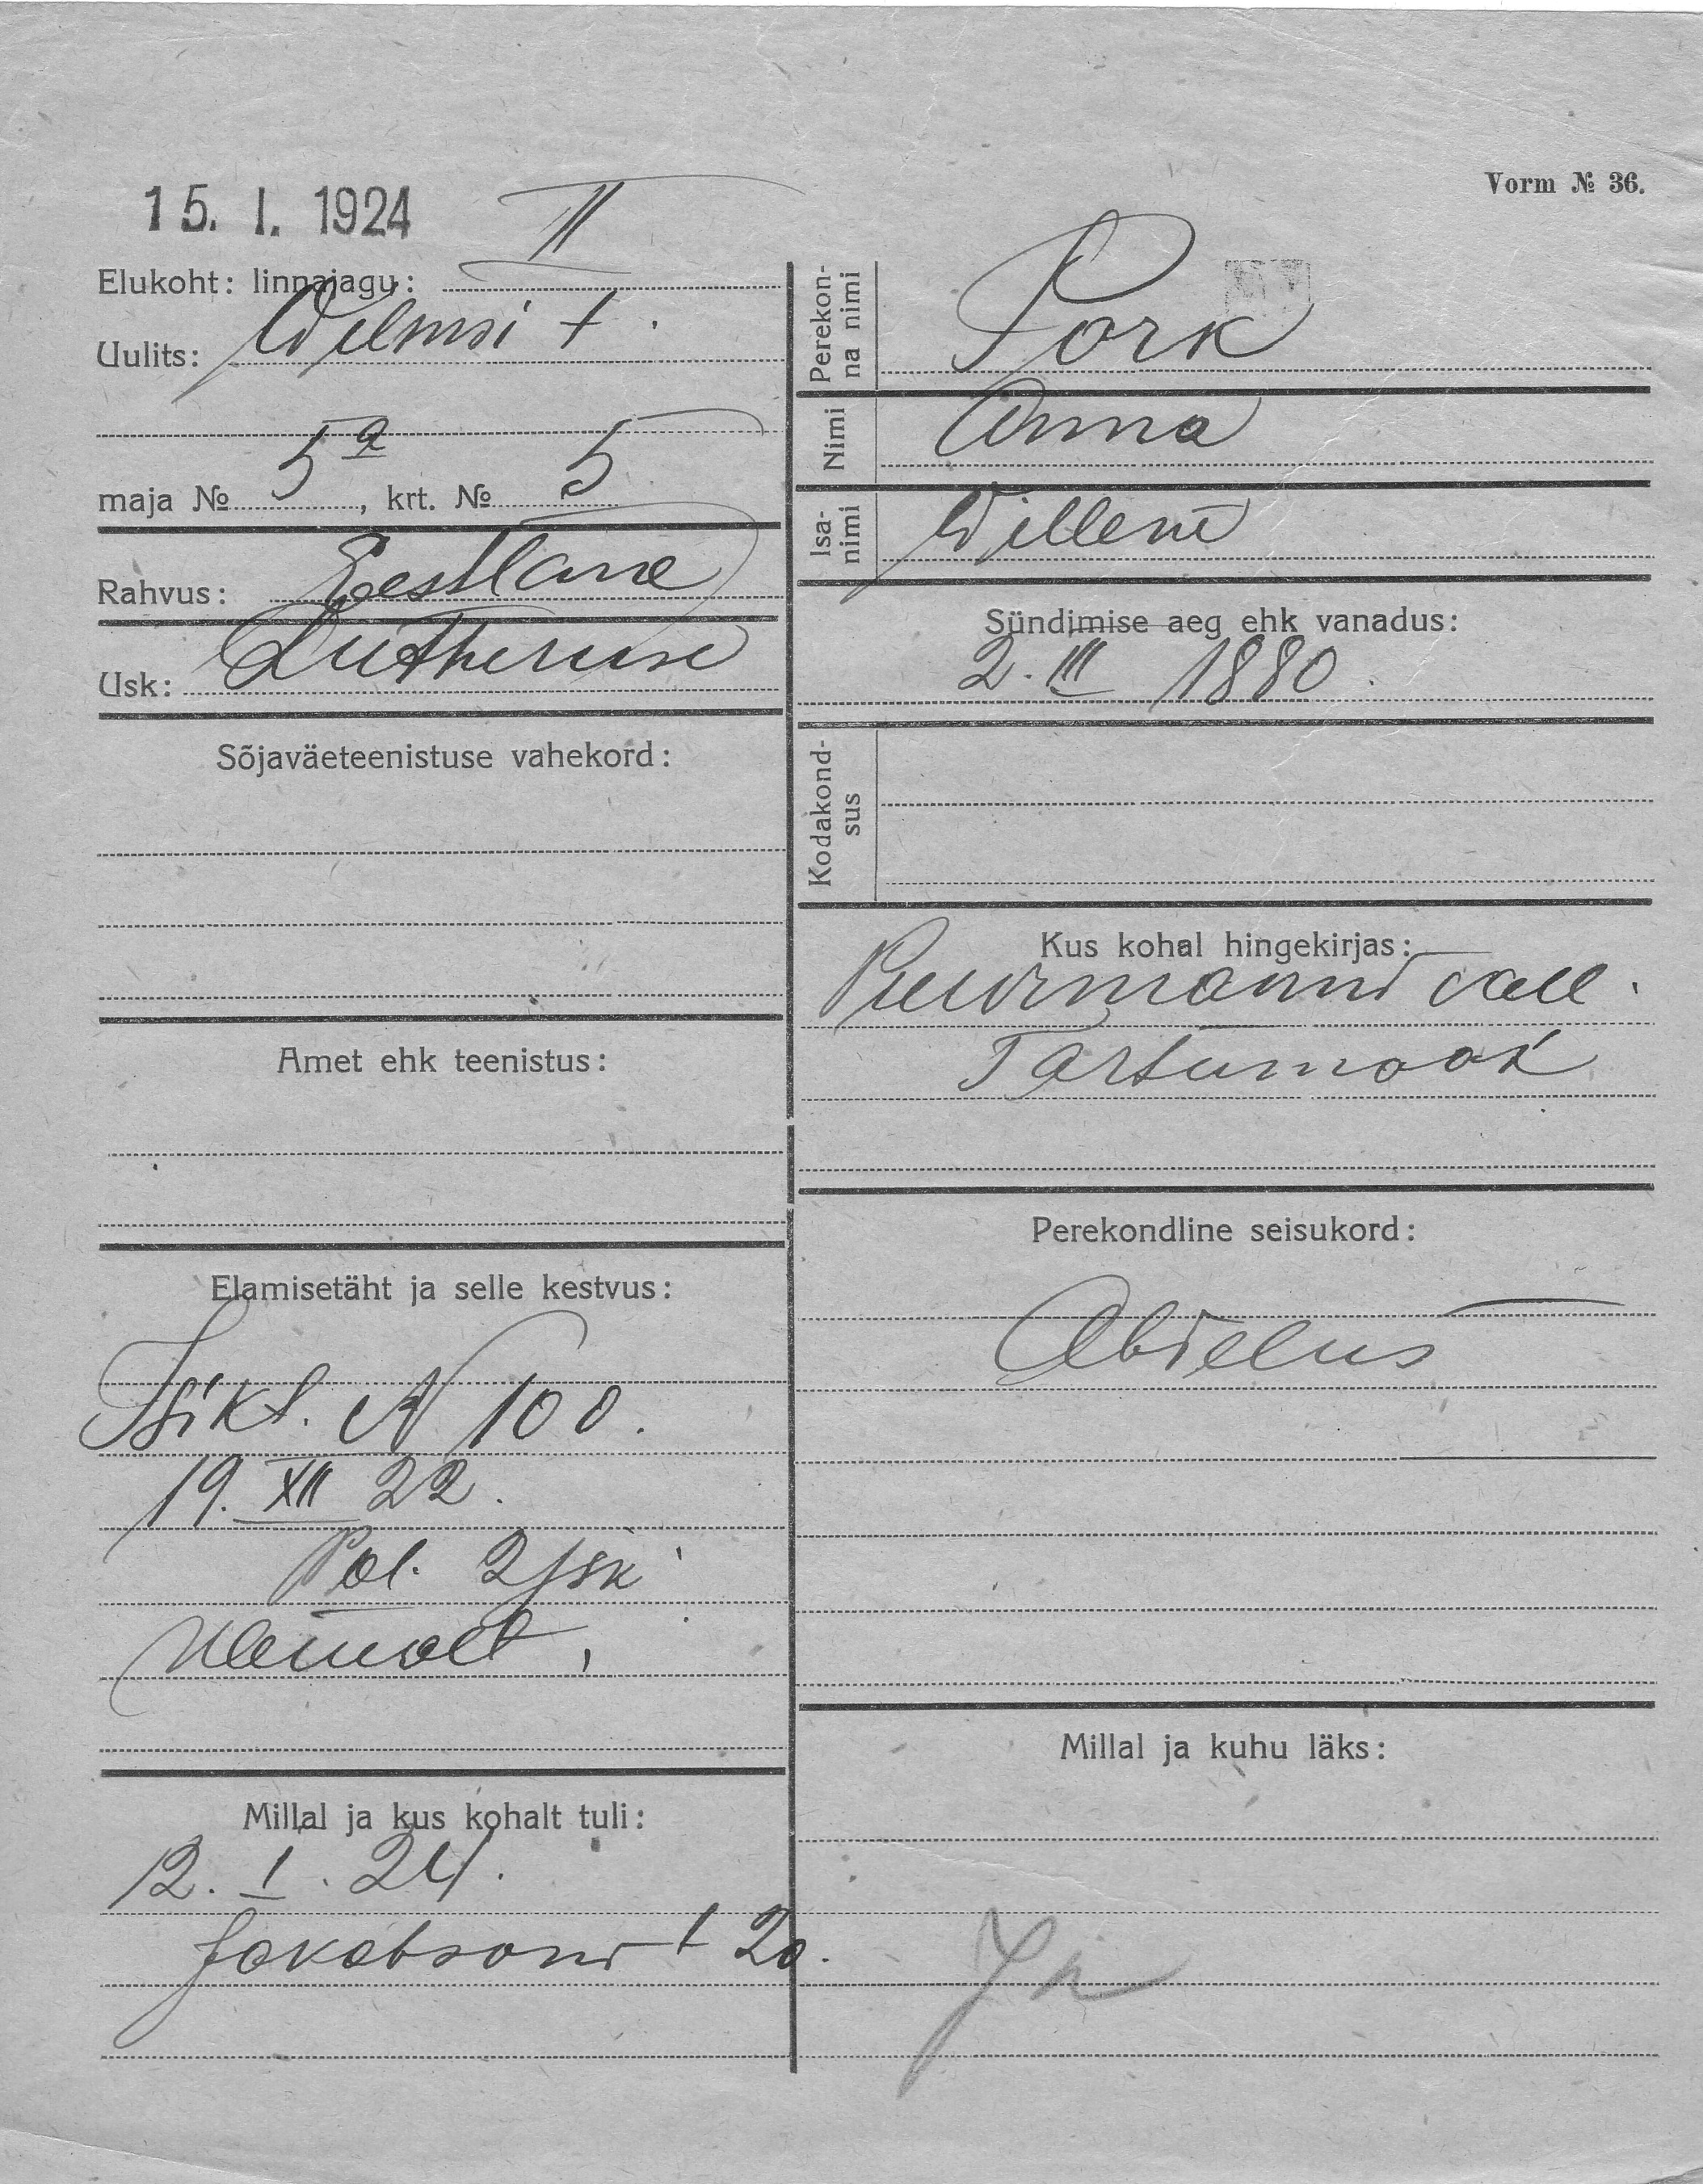 Vorm № 36.
15. I. 1924
Elukoht: linnajagu: II
Uulits: Wilmsi t.
maja № 5a, krt. № 5
Rahvus: Eestlane
Usk: Lutheruse
Sõjaväeteenistuse vahekord:
Amet ehk teenistus:
Elamisetäht ja selle kestvus:
N 100.
19. XII 22.
Pol. 2 jsk
Millal ja kus kohalt tuli:
12. I. 24.
Jakobsoni t 20.
Perekonna nimi
Pork
Nimi
Anna
Isanimi
Willem
Sündimise aeg ehk vanadus:
2. III 1880.
Kodakondsus
Kus kohal hingekirjas:
Puurmanni vall.
Tartumaal
Perekondline seisukord:
Abielus
Millal ja kuhu läks: